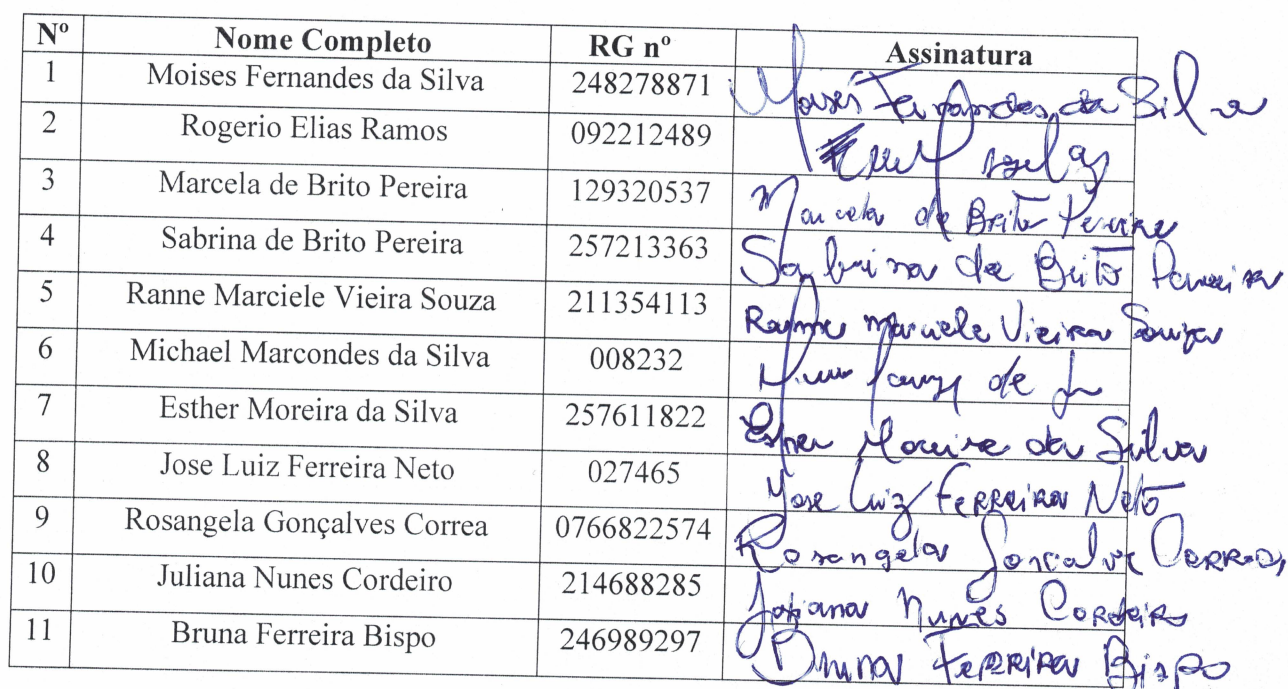 Nº Nome Completo RG nº Assinatura
1 Moises Fernandes da Silva 248278871 Moisés Fernandes da Silva
2 Rogerio Elias Ramos 092212489
3 Marcela de Brito Pereira 129320537 Marcela de Brito Pereira
4 Sabrina de Brito Pereira 257213363 Sabrina de Brito Pereira
5 Ranne Marciele Vieira Souza 211354113 Ranne Marciele Vieira Souza
6 Michael Marcondes da Silva 008232
7 Esther Moreira da Silva 257611822 Esther Moreira da Silva
8 Jose Luiz Ferreira Neto 027465 Jose Luiz Ferreira Neto
9 Rosangela Gonçalves Correa 0766822574 Rosangela Gonçalves Correa
10 Juliana Nunes Cordeiro 214688285 Juliana Nunes Cordeiro
11 Bruna Ferreira Bispo 246989297 Bruna Ferreira Bispo